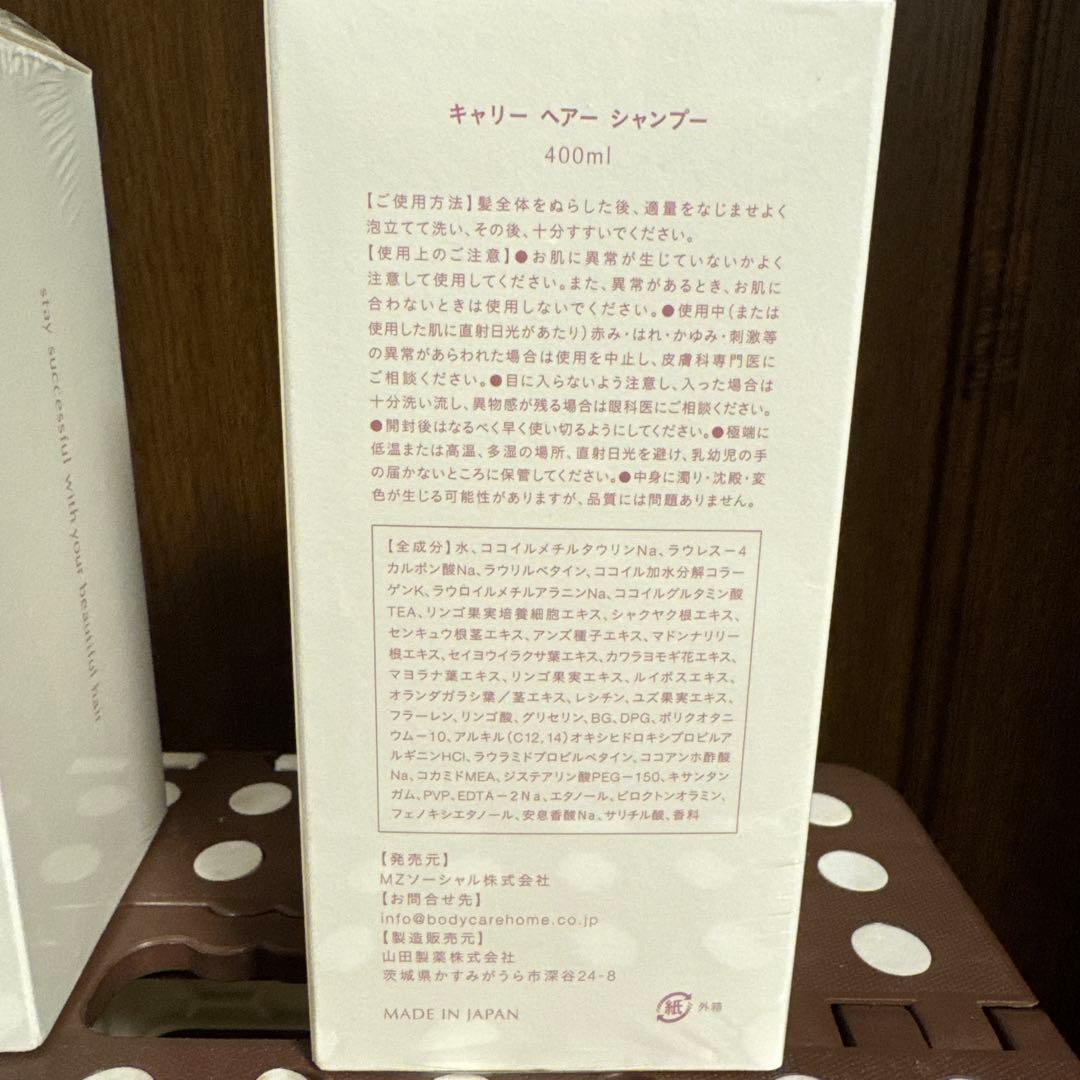 キャリー ヘアー シャンプー
400ml
【ご使用方法】髪全体をぬらした後、適量をなじませよく
泡立てて洗い、その後、十分すすいでください。
【使用上のご注意】●お肌に異常が生じていないかよく
注意して使用してください。また、異常があるとき、お肌に
合わないときは使用しないでください。●使用中(または
使用した肌に直射日光があたり)赤み・はれ・かゆみ・刺激等
の異常があらわれた場合は使用を中止し、皮膚科専門医に
ご相談ください。●目に入らないよう注意し、入った場合は
十分洗い流し、異物感が残る場合は眼科医にご相談ください。
●開封後はなるべく早く使い切るようにしてください。●極端に
低温または高温、多湿の場所、直射日光を避け、乳幼児の手
の届かないところに保管してください。●中身に濁り・沈殿・変
色が生じる可能性がありますが、品質には問題ありません。
【全成分】水、ココイルメチルタウリンNa、ラウレス-4
カルボン酸Na、ラウリルベタイン、ココイル加水分解コラー
ゲンK、ラウロイルメチルアラニンNa、ココイルグルタミン酸
TEA、リンゴ果実培養細胞エキス、シャクヤク根エキス、
センキュウ根茎エキス、アンズ種子エキス、マドンナリリー
根エキス、セイヨウイラクサ葉エキス、カワラヨモギ花エキス、
マヨラナ葉エキス、リンゴ果実エキス、ルイボスエキス、
オランダガラシ葉/茎エキス、レシチン、ユズ果実エキス、
フラーレン、リンゴ酸、グリセリン、BG、DPG、ポリクオタニ
ウム-10、アルキル(C12,14)オキシヒドロキシプロピルア
ルギニンHCl、ラウラミドプロピルベタイン、ココアンホ酢酸
Na、コカミドMEA、ジステアリン酸PEG-150、キサンタン
ガム、PVP、EDTA-2Na、エタノール、ピロクトンオラミン、
フェノキシエタノール、安息香酸Na、サリチル酸、香料
【発売元】
MZソーシャル株式会社
【お問合せ先】
info@bodycarehome.co.jp
【製造販売元】
山田製薬株式会社
茨城県かすみがうら市深谷24-8
MADE IN JAPAN
紙 外箱
stay successful with your beautiful hair